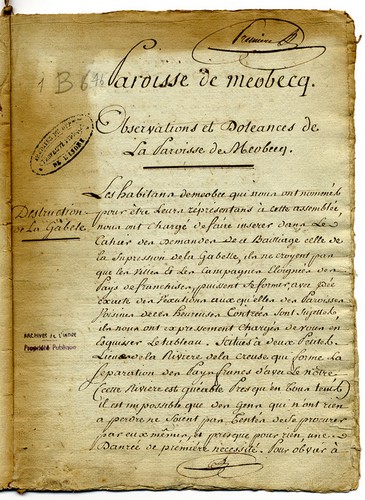 Première
1 B 646
Paroisse de meobecq.
ARCHIVES DU DEPT
DE L'INDRE
Observations et Doleances de
La Paroisse de Meobecq.
Les habitans de meobec qui nous ont nommés
Destruction
pour être Leurs répresentans à cette assemblée,
de La Gabéle.
nous ont Chargé de faire inserer dans Le
Cahier des Demandes de ce Bailliage celle de
la Supression de la Gabelle, ils ne croyent pas
que les Villes & Les Campagnes Eloignées des
Pays de franchises, puissent se former, une jdée
Exacte des Vexations aux qu'elles des Paroisses
Voisines de ces heureuses Contrées Sont Sujettes,
ARCHIVES DE L'INDRE
ils nous ont expressement Chargés de vous en
Propriété Publique
Esquisser Le tableau. Scitués à deux Petites
Lieues de la Riviere de la Creuse qui forme la
Separation des Pays francs d'avec Le nôtre
(cette Riviere est guéable Presqu'en tous tems)
il est impossible que des Gens qui n'ont rien
a perdre ne Soient pas tentés de se procurer
par eux mêmes, et presque pour rien, une
Danrée de premiere necessité. Pour obvier à